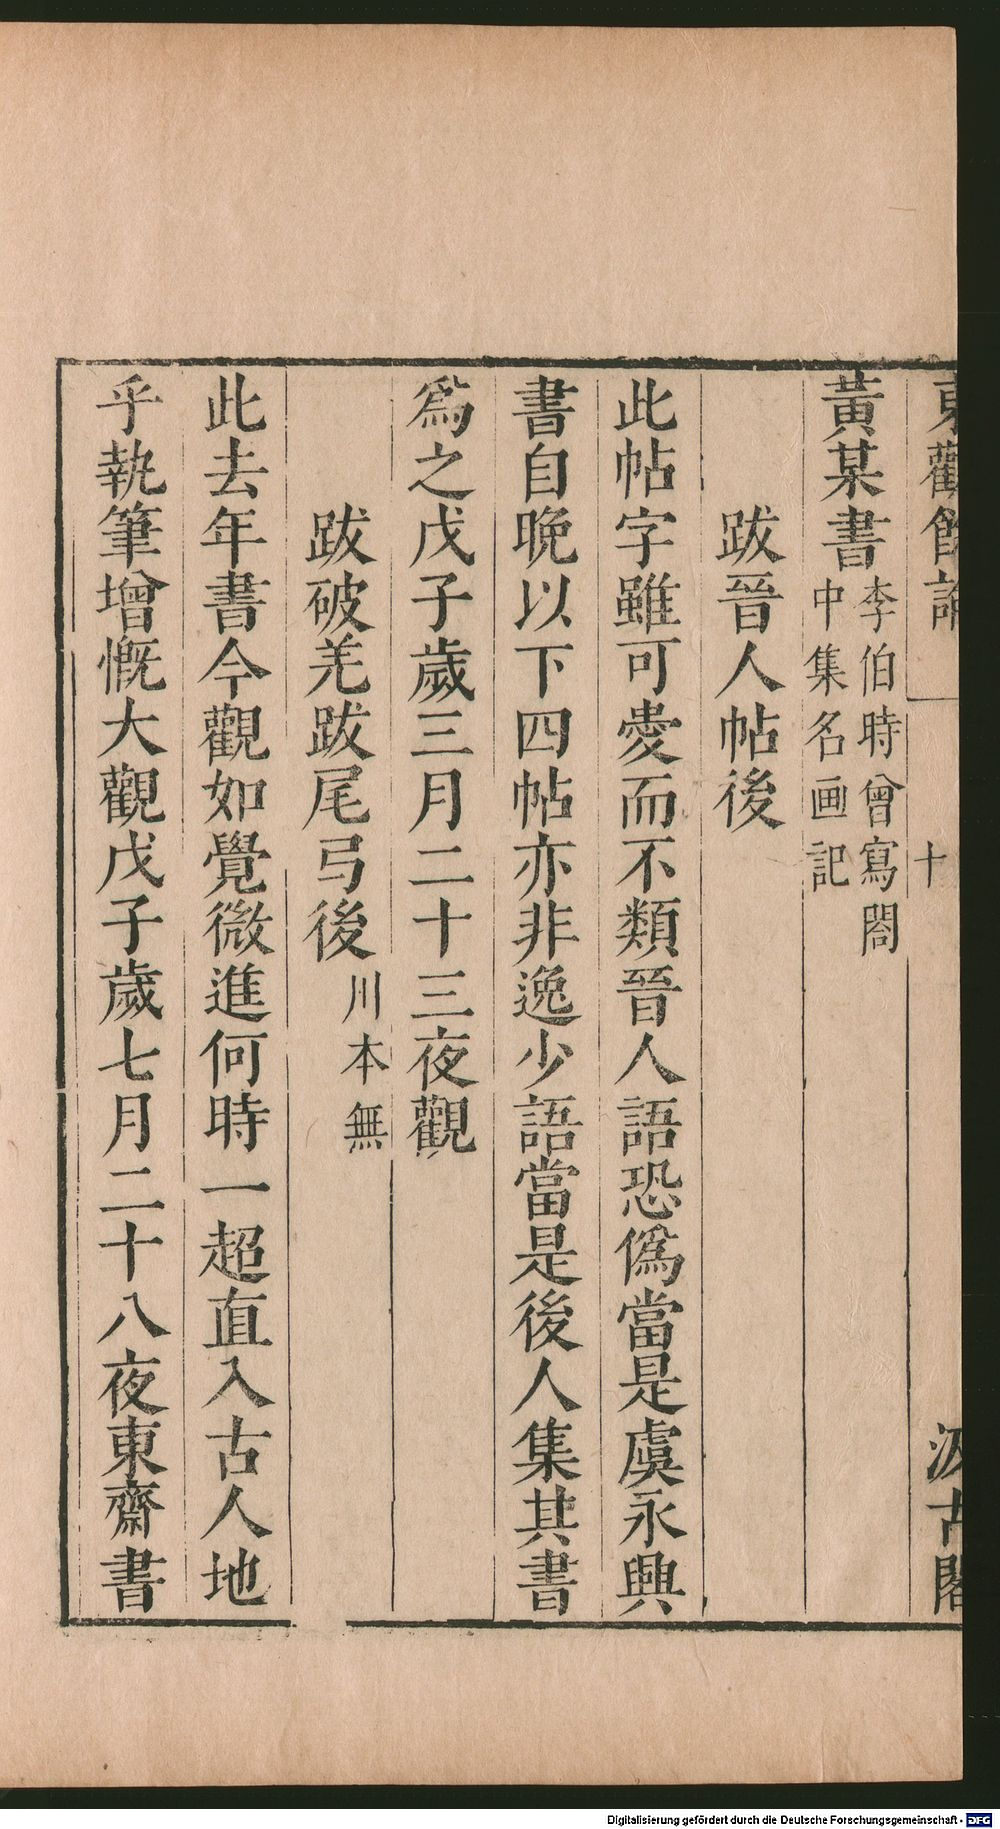 東觀餘論
十
汲古閣
黃某書李伯時曾寫閤
中集名画記
跋晉人帖後
此帖字雖可愛而不類晉人語恐僞當是虞永興
書自晚以下四帖亦非逸少語當是後人集其書
爲之戊子歲三月二十三夜觀
跋破羌跋尾弓後川本無
此去年書今觀如覺微進何時一超直入古人地
乎執筆增慨大觀戊子歲七月二十八夜東齋書
Digitalisierung gefördert durch die Deutsche Forschungsgemeinschaft - DFG